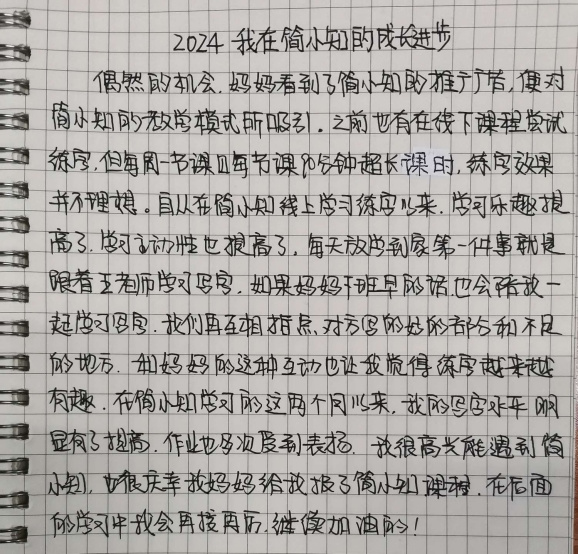 2024 我在简小知的成长进步
偶然的机会，妈妈看到了简小知的推广广告，便对
简小知的教学模式所吸引。之前也有在线下课程尝试
练字，但每周一节课且每节课90分钟超长课时，练字效果
并不理想。自从在简小知线上学习练字以来，学习乐趣提
高了，学习主动性也提高了，每天放学到家第一件事就是
跟着王老师学习写字，如果妈妈下班早的话也会陪我一
起学习写字，我们再互相指点对方写的好的部分和不足
的地方，和妈妈的这种互动也让我觉得练字越来越
有趣。在简小知学习的这两个月以来，我的写字水平明
显有了提高，作业也多次受到表扬，我很高兴能遇到简
小知，也很庆幸我妈妈给我报了简小知课程，在后面
的学习中我会再接再厉，继续加油的！